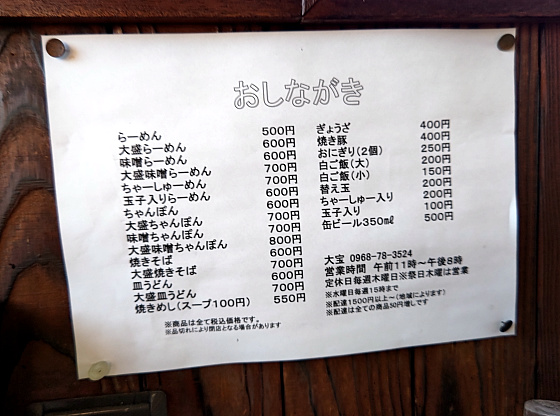 おしながき
らーめん 500円
大盛らーめん 600円
味噌らーめん 600円
大盛味噌らーめん 700円
ちゃーしゅーめん 700円
玉子入りらーめん 600円
ちゃんぽん 600円
大盛ちゃんぽん 700円
味噌ちゃんぽん 700円
大盛味噌ちゃんぽん 800円
焼きそば 600円
大盛焼きそば 700円
皿うどん 600円
大盛皿うどん 700円
焼きめし(スープ100円) 550円
※商品は全て税込価格です。
※品切れにより閉店となる場合があります
ぎょうざ 400円
焼き豚 400円
おにぎり(2個) 250円
白ご飯(大) 200円
白ご飯(小) 150円
替え玉 200円
ちゃーしゅー入り 200円
玉子入り 100円
缶ビール350㎖ 500円
大宝 0968-78-3524
営業時間 午前11時～午後8時
定休日毎週木曜日※祭日木曜は営業
※水曜日毎週15時まで
※配達1500円以上～(地域によります)
※配達は全ての商品50円増しです